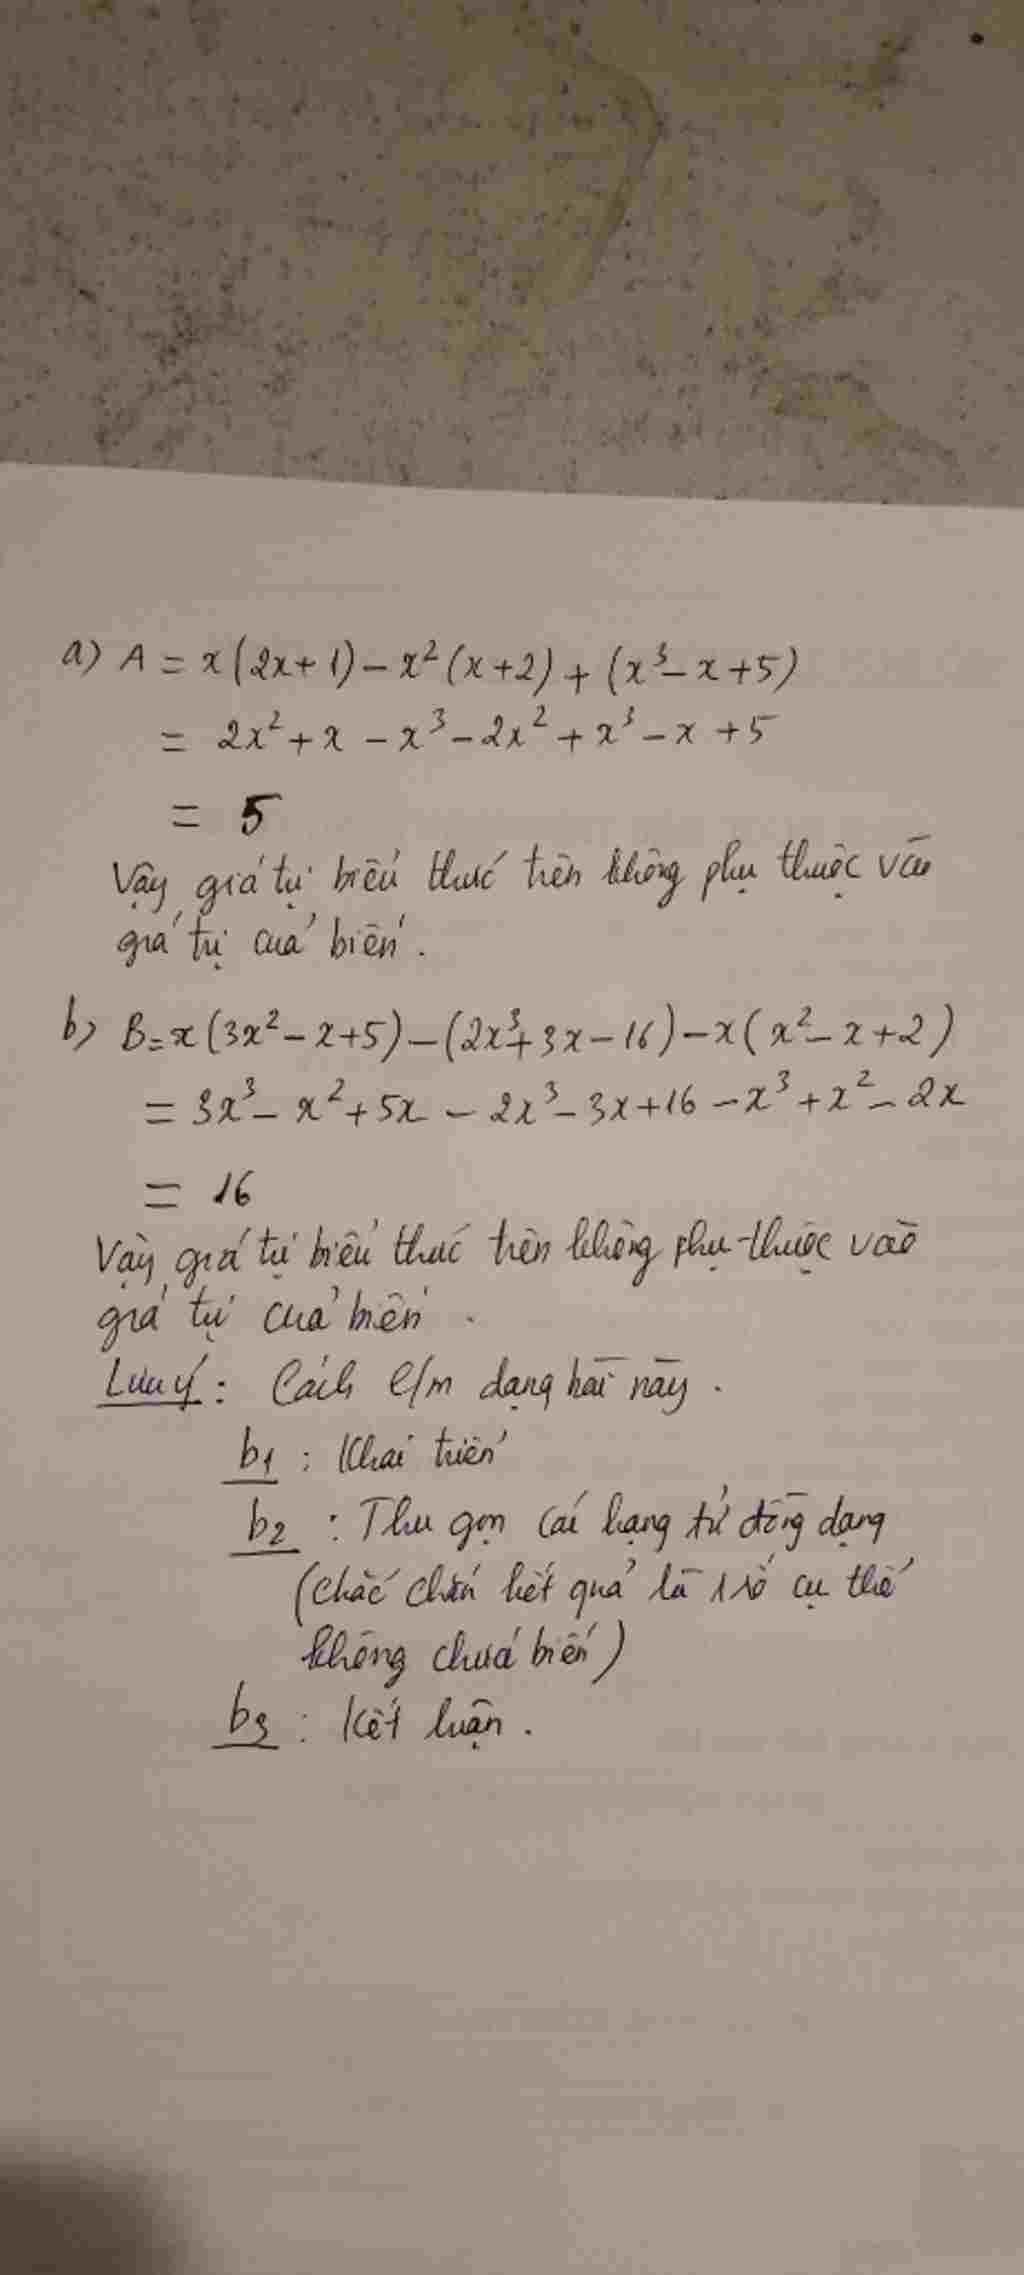 a) A = x(2x+1) - x²(x+2) + (x³ - x + 5)
= 2x² + x - x³ - 2x² + x³ - x + 5
= 5
Vậy giá trị biểu thức trên không phụ thuộc vào
giá trị của biến.
b) B = x(3x² - x + 5) - (2x³ + 3x - 16) - x(x² - x + 2)
= 3x³ - x² + 5x - 2x³ - 3x + 16 - x³ + x² - 2x
= 16
Vậy giá trị biểu thức trên không phụ thuộc vào
giá trị của biến.
Lưu ý: Cách c/m dạng bài này.
b1: Khai triển
b2: Thu gọn các hạng tử đồng dạng
(chắc chắn kết quả là 1 số cụ thể
không chứa biến)
b3: Kết luận.